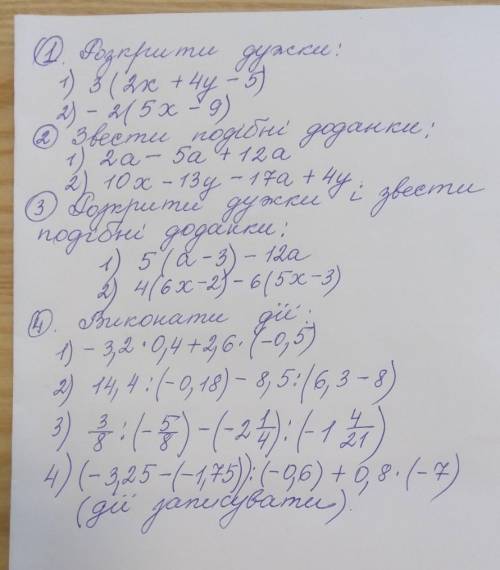 1. Розкрити дужки:
1) 3(2x + 4y - 5)
2) - 2(5x - 9)
2 Звести подібні доданки;
1) 2a - 5a + 12a
2) 10x - 13y - 17a + 4y
3 Розкрити дужки і звести
подібні доданки;
1) 5(a - 3) - 12a
2) 4(6x - 2) - 6(5x - 3)
4. Виконати дії:
1) - 3,2 · 0,4 + 2,6 · (-0,5)
2) 14,4 : (-0,18) - 8,5 : (6,3 - 8)
3) 3/8 : (- 5/8) - (-2 1/4) : (-1 4/21)
4) (- 3,25 - (-1,75)) : (-0,6) + 0,8 · (-7)
(дії записувати).